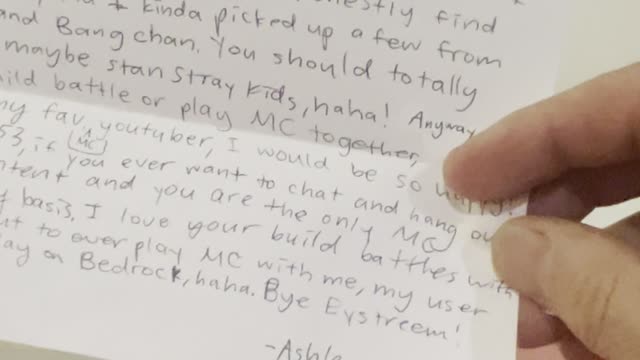 honestly find
kinda picked up a few from
and Bang chan. You should totally
maybe stan Stray Kids, haha! Anyway
build battle or play MC together,
my fav MC youtuber, I would be so happy!
if you ever want to chat and hang ou
ntent and you are the only MC
basis, I love your build battles with
to ever play MC with me, my user
on Bedrock, haha. Bye Eystreem!
-Ashle